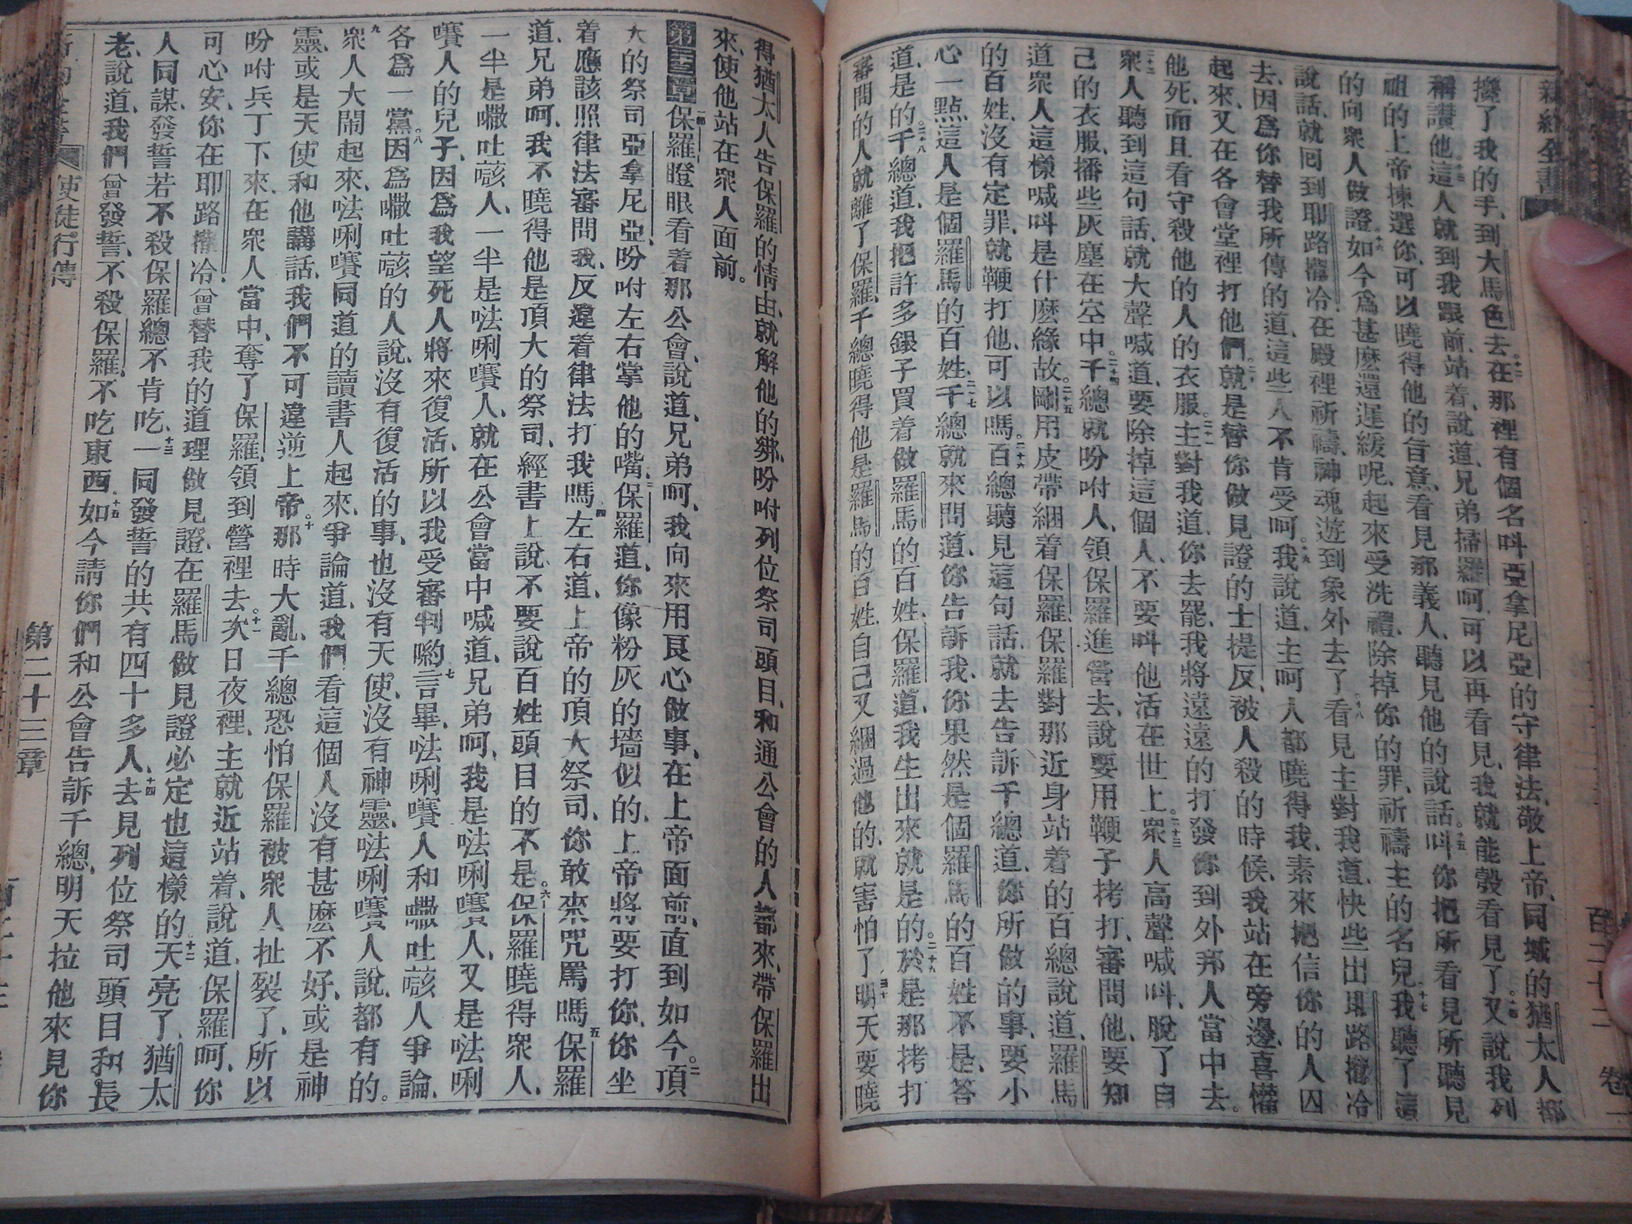 新約全書
攙了我的手、到大馬色去、十二在那裡有個名叫亞拿尼亞的守律法、敬上帝、同城的猶太人都
稱讚他、十三這人就到我跟前、站着、說道、兄弟掃羅呵、可以再看見、我就能彀看見了、十四又說我列
祖的上帝揀選你、可以曉得他的旨意、看見那義人、聽見他的說話、十五叫你把所看見所聽見
的向衆人做證、十六如今爲甚麽還遲緩呢、起來受洗禮、除掉你的罪、祈禱主的名兒、十七我聽了這
說話、就回到耶路撒冷、在殿裡祈禱、神魂遊到象外去了、十八看見主主對我道、快些出耶路撒冷
去、因爲你替我所傳的道、這些人不肯受呵、十九我說道、主呵、人都曉得我、素來把信你的人囚
起來、又在各會堂裡打他們、二十就是替你做見證的士提反、被人殺的時候、我站在旁邊、喜懽
他死、而且看守殺他的人的衣服、二十一主對我道、你去罷、我將遠遠的打發你到外邦人當中去。
二十二衆人聽到這句話、就大聲喊道、要除掉這個人、不要叫他活在世上、二十三衆人高聲喊叫、脫了自
己的衣服、播些灰塵在空中、二十四千總就吩咐人、領保羅進營去、說要用鞭子拷打、審問他、要知
道衆人這樣喊叫是什麽緣故、二十五剛用皮帶綑着保羅、保羅對那近身站着的百總說道、羅馬
的百姓、沒有定罪、就鞭打他、可以嗎、二十六百總聽見這句話、就去告訴千總道、你所做的事、要小
心一點、這人是個羅馬的百姓、二十七千總就來問道、你告訴我、你果然是個羅馬的百姓不是、答
道、是的、二十八千總道、我把許多銀子買着做羅馬的百姓、保羅道、我生出來就是的、二十九於是那拷打
審問的人、就離了保羅、千總曉得他是羅馬的百姓、自己又綑過他的、就害怕了、三十明天要曉
得猶太人告保羅的情由、就解他的綁、吩咐列位祭司頭目、和通公會的人都來、帶保羅出
來、使他站在衆人面前。
第二十三章 一保羅瞪眼看着那公會、說道、兄弟呵、我向來用良心做事、在上帝面前、直到如今、二頂
大的祭司亞拿尼亞、吩咐左右掌他的嘴、三保羅道、你像粉灰的墻似的、上帝將要打你、你坐
着應該照律法審問我、反違着律法打我嗎、四左右道、上帝的頂大祭司、你敢來咒罵嗎、五保羅
道、兄弟呵、我不曉得他是頂大的祭司、經書上說、不要說百姓頭目的不是、六保羅曉得衆人、
一半是㘔吐㗨人、一半是㕸唎㘔人、就在公會當中喊道、兄弟呵、我是㕸唎㘔人、又是㕸唎
㘔人的兒子、因爲我望死人將來復活、所以我受審判喲、七言畢、㕸唎㘔人和㘔吐㗨人爭論、
各爲一黨、八因爲㘔吐㗨的人說、沒有復活的事、也沒有天使、沒有神靈、㕸唎㘔人說、都有的。
九衆人大鬧起來、㕸唎㘔同道的讀書人起來、爭論道、我們看這個人沒有甚麽不好、或是神
靈、或是天使和他講話、我們不可違逆上帝、十那時大亂、千總恐怕保羅被衆人扯裂了、所以
吩咐兵丁下來、在衆人當中、奪了保羅、領到營裡去、十一次日夜裡、主就近站着、說道、保羅呵、你
可心安、你在耶路撒冷曾替我的道理做見證、在羅馬做見證必定也這樣的、十二天亮了、猶太
人同謀、發誓若不殺保羅總不肯吃、十三一同發誓的共有四十多人、十四去見列位祭司頭目和長
老、說道、我們曾發誓、不殺保羅、不吃東西、十五如今請你們和公會告訴千總、明天拉他來見你
使徒行傳
第二十三章